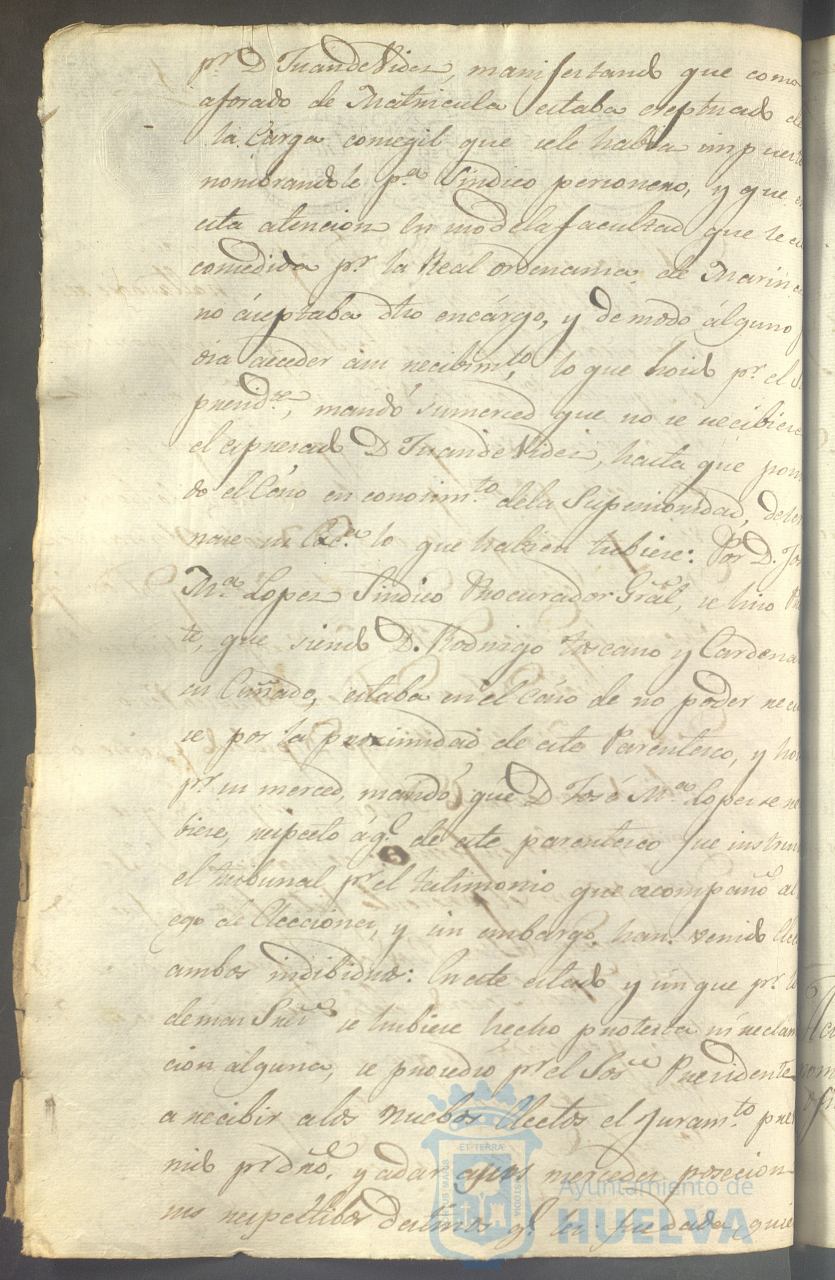 pr. D Juan de Vides, manifestando que como
aforado de Matricula estaba exeptuado de
la Carga consegil que sele habia impuesto
nombrandole pa. Sindico personero, y que en
esta atencion en uso dela facultad que le es
consedida pr. la Real ordenansa de Marin
no áseptaba dho encárgo, y de modo álguno
dia acceder asu recibimto, lo que hoido pr. el S
presidte, mandó sumerced que no se recibiese
el espresado D Juan de Vides, hasta que ponien
do el Cáso en conosimto dela Superioridad, deter
nase su Exca. lo que habien tubiese: Por D. Jo
Ma. Lopez Sindico Procurador Gral, se hiso
te, que siendo D. Rodrigo toscano y Cardena
su Cuñado, estaba en el Cáso de no poder reci
se por la proximidad de este Parentesco, y ho
pr. su merced, mandó que D José Ma. Lopez se re
biese, respecto áq. de este parentesco fue instrui
el tribunal pr. el testimonio que acompañó al
ego de Elecciones, y sin embargo han venido Elec
ambos indibiduos: En este estado y sin que pr. lo
demas Sres. se hubiese hecho protesta ni reclama
cion alguna, se prosedio pr. el Sor. Presidente
a recibir alos Nuebos Electos el Juramto. pre
nido pr. dro. y adar asus mercedes posecion
sus respectibos destinos q. les fue dada, quie
Ayuntamiento de
HUELVA